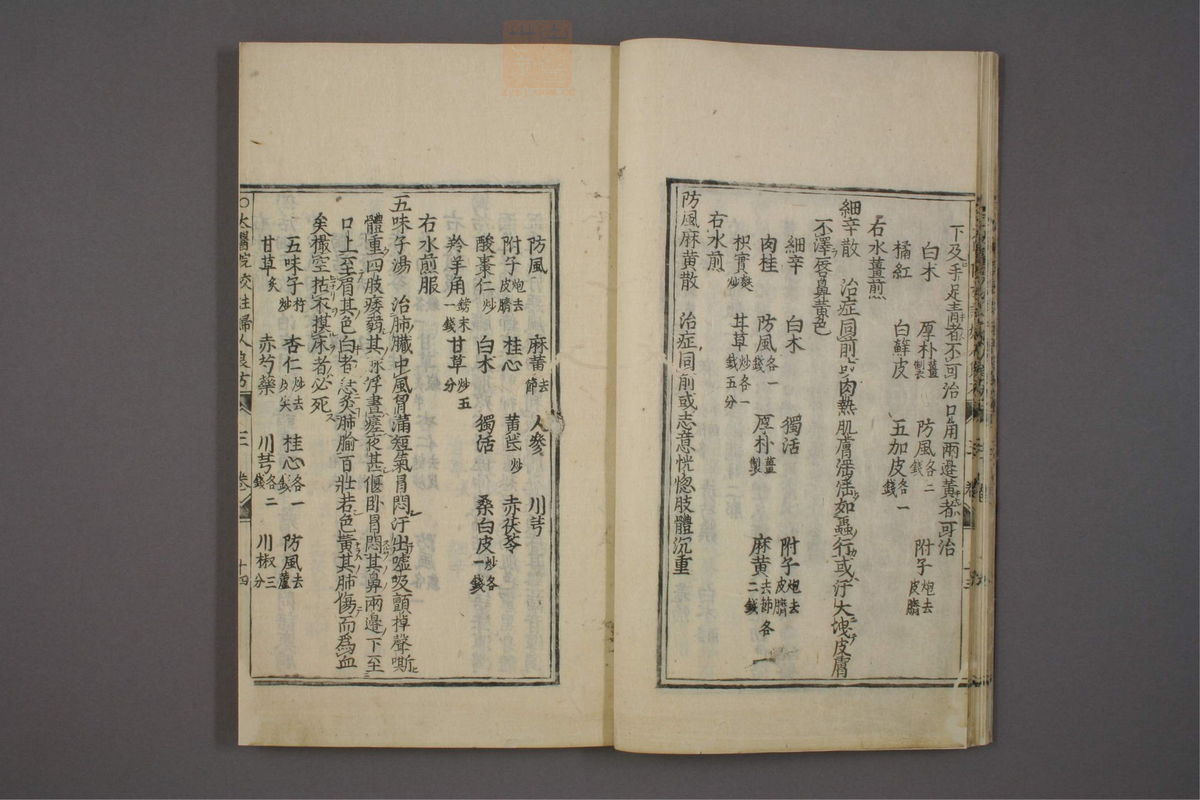 下及手足青者不可治口用兩邊黃者可治
白朮 厚朴薑製 防風各二錢 附子炮去皮臍
橘紅 白蘚皮 五加皮各一錢
右水薑煎
細辛散 治症同前或肉熱肌膚淫淫如蟲行或汗大洩皮膚
不澤唇鼻黃色
細辛 白朮 獨活 附子炮去皮臍
肉桂 防風各一錢 厚朴薑製 麻黃去節各一二錢
枳實麩炒 甘草炒各一錢五分
右水煎
防風麻黃散 治症同前或志意恍惚肢體沉重
防風 麻黃去節 人參 川芎
附子炮去皮臍 桂心 黃芪炒 赤茯苓
酸棗仁炒 白朮 獨活 桑白皮炒各一錢
羚羊角鎊末一錢 甘草炒五分
右水煎服
五味子湯 治肺臟中風胷滿短氣冒悶汗出噓吸顫掉聲嘶
體重四肢痿弱其脉浮晝瘥夜甚偃卧冒悶其鼻兩邊下至
口上至眉其色白者急灸肺腧百壯若色黃其肺傷而爲血
矣撮空拈衣摸床者必死
五味子杵炒 杏仁炒去皮尖 桂心各一錢 防風去蘆
甘草炙 赤芍藥 川芎各二錢 川椒三分
太醫院校註婦人良方 卷三 十四